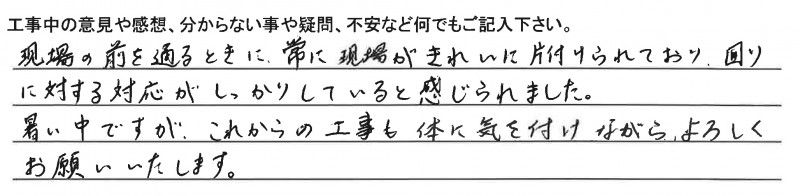 工事中の意見や感想、分からない事や疑問、不安など何でもご記入下さい。
現場の前を通るときに、常に現場がきれいに片付けられており、回り
に対する対応がしっかりしていると感じられました。
暑い中ですが、これからの工事も体に気を付けながら、よろしく
お願いいたします。